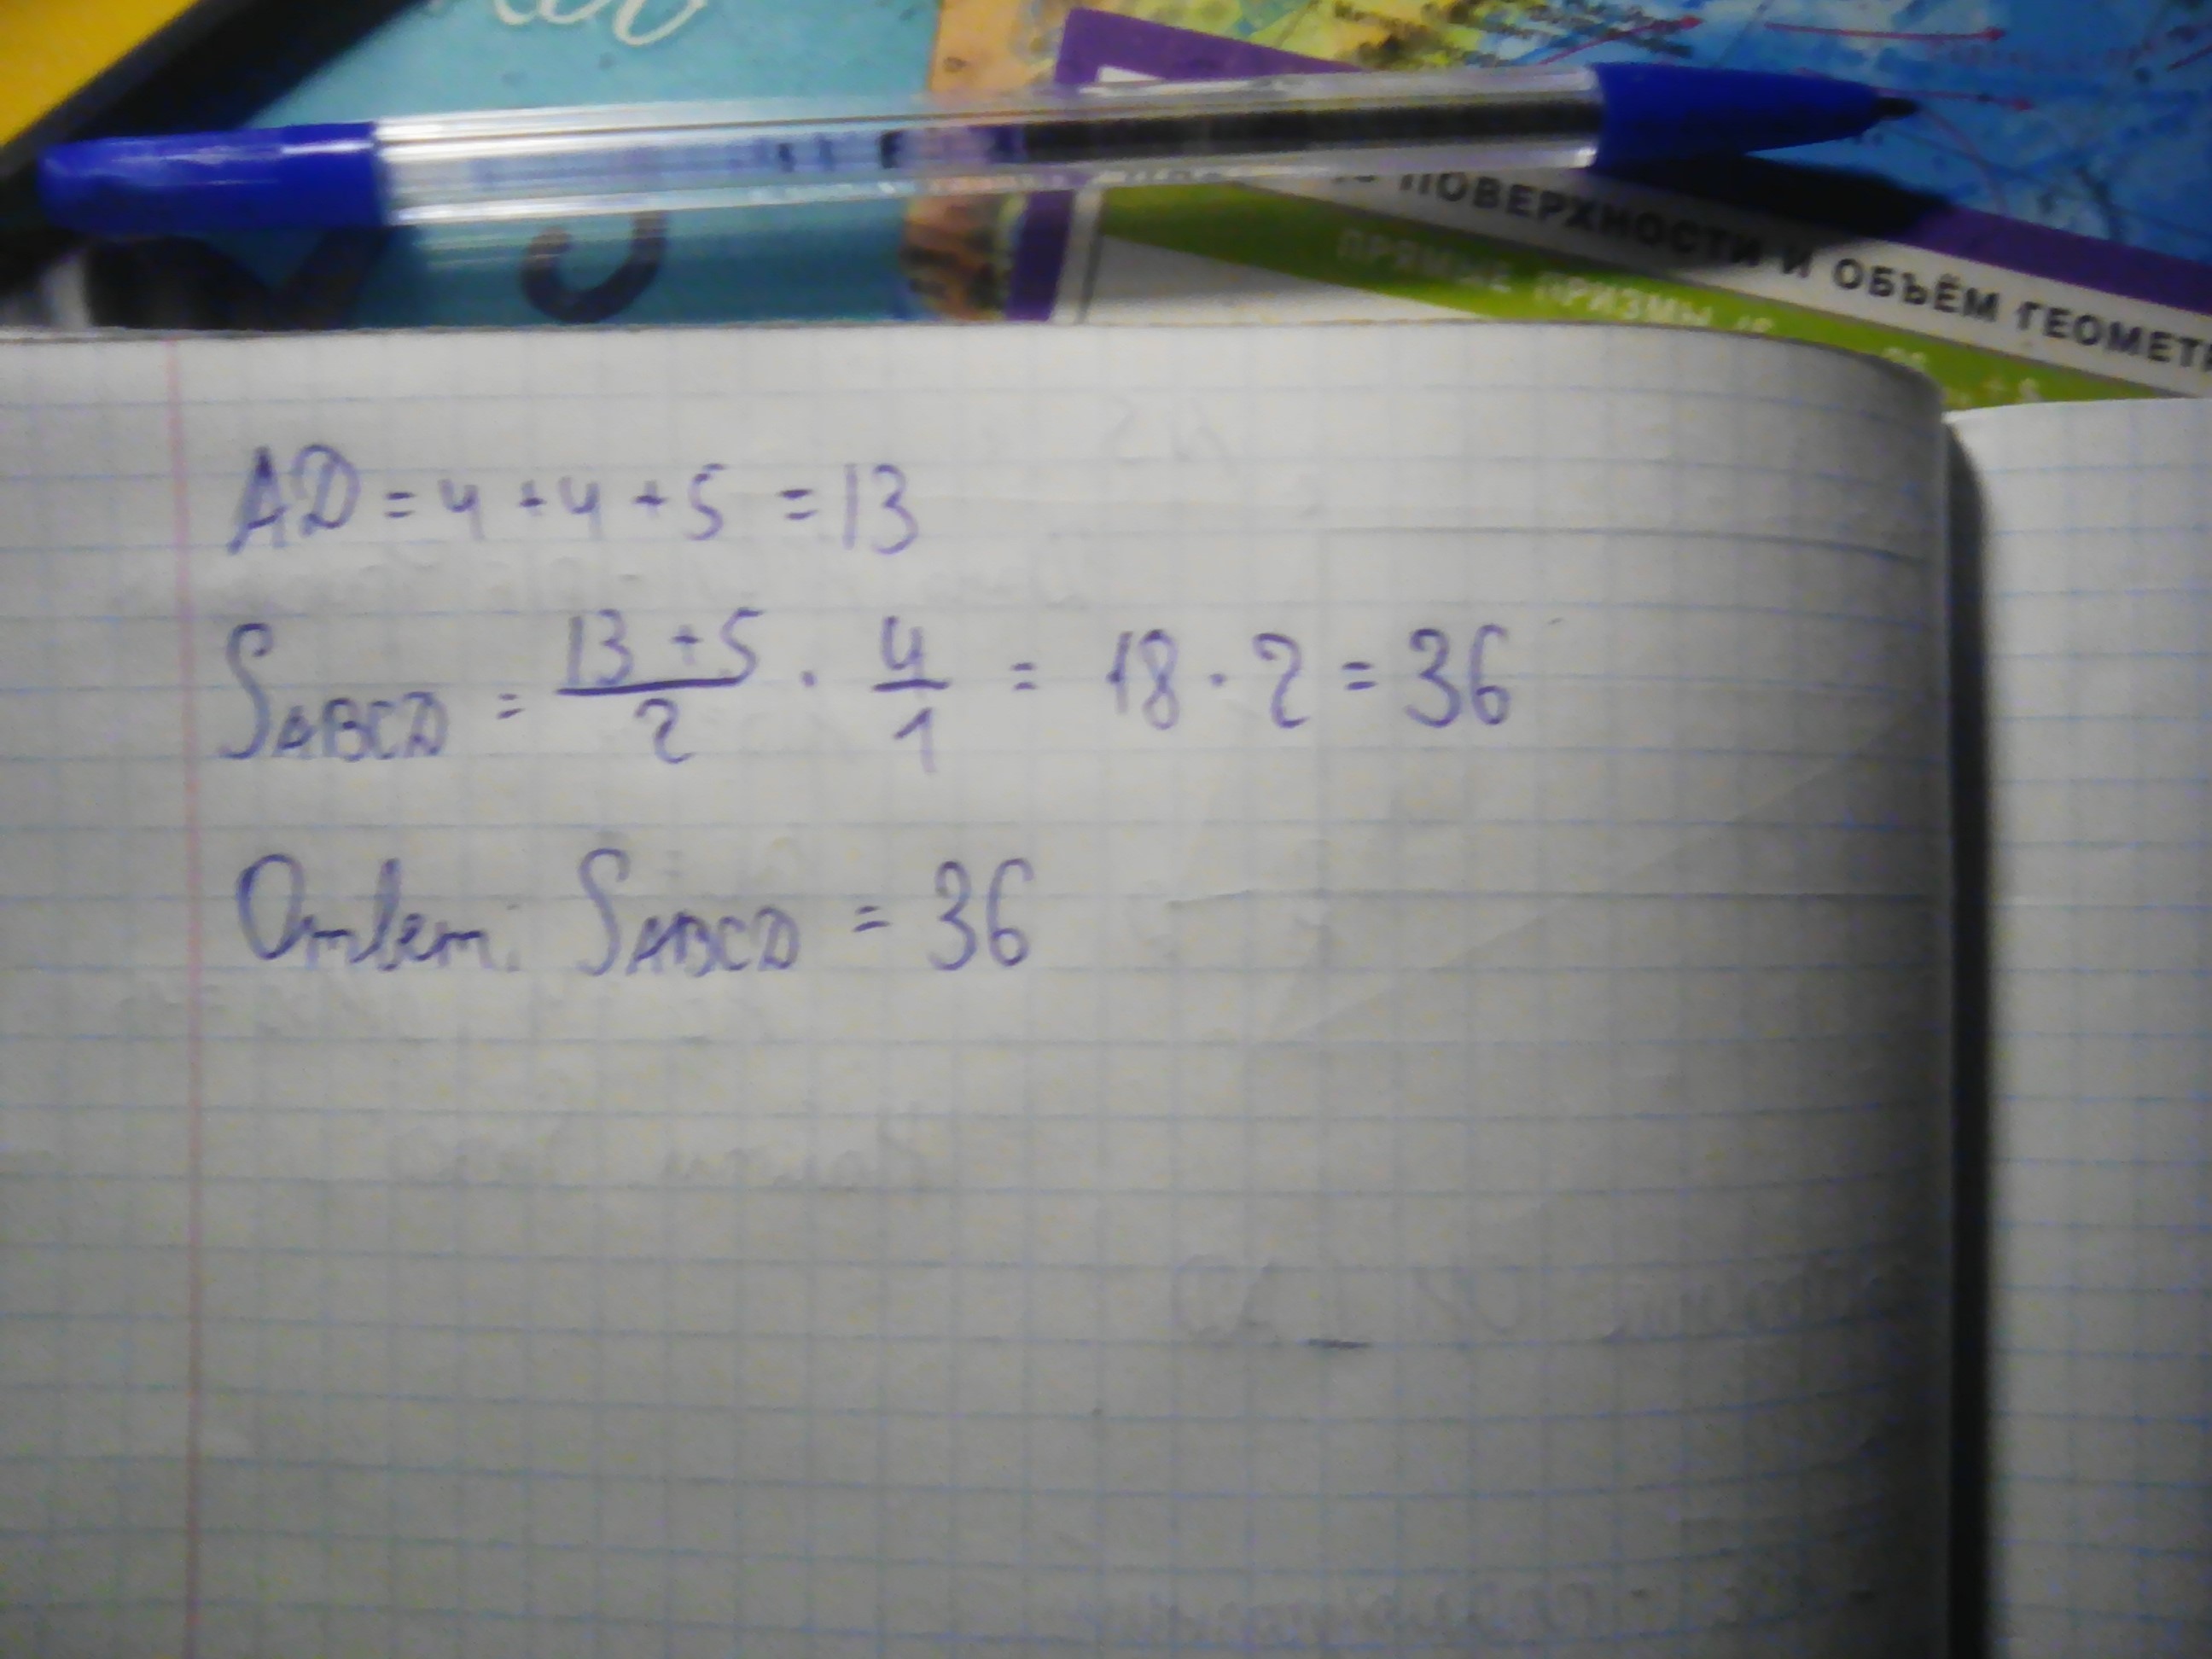 ПОВЕРХНОСТИ И ОБЪЁМ ГЕОМЕТР
ПРЯМЫЕ ПРИЗМЫ
AD = 4 + 4 + 5 = 13
SABCD = 13 + 5 / 2 · 4 / 1 = 18 · 2 = 36
Ответ: SABCD = 36